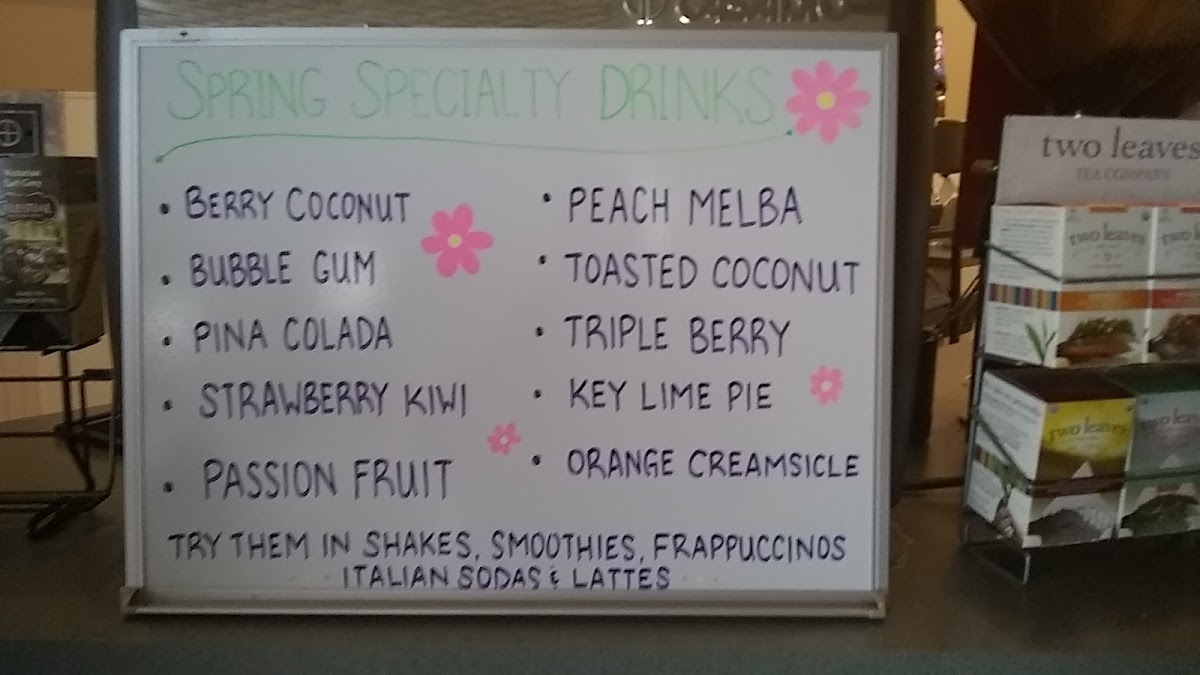 SPRING SPECIALTY DRINKS
• BERRY COCONUT
• BUBBLE GUM
• PINA COLADA
• STRAWBERRY KIWI
• PASSION FRUIT
• PEACH MELBA
• TOASTED COCONUT
• TRIPLE BERRY
• KEY LIME PIE
• ORANGE CREAMSICLE
TRY THEM IN SHAKES, SMOOTHIES, FRAPPUCCINOS
ITALIAN SODAS & LATTES
two leaves
TEA COMPANY
two leaves
two leaves
two leaves